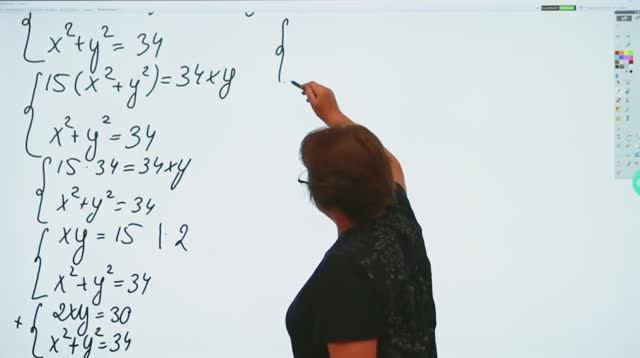 x² + y² = 34
15(x² + y²) = 34xy
x² + y² = 34
15 · 34 = 34xy
x² + y² = 34
xy = 15 | · 2
x² + y² = 34
+ 2xy = 30
x² + y² = 34